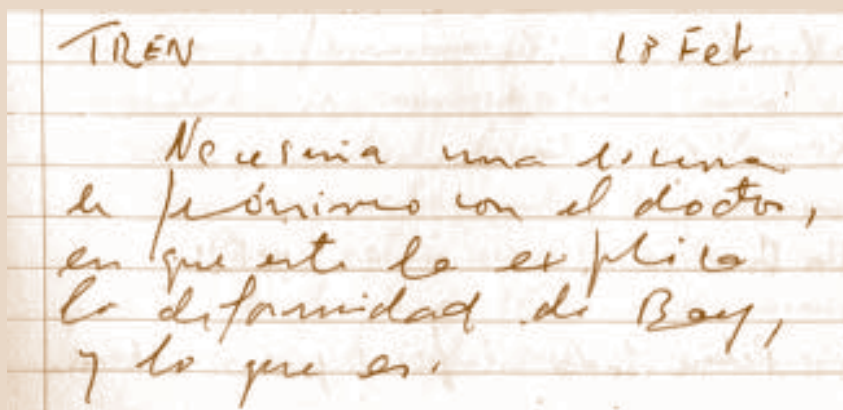 TREN 18 Feb
Necesaria una escena
de Jerónimo con el doctor,
en que este le explica
la deformidad de Boy,
y lo que es.